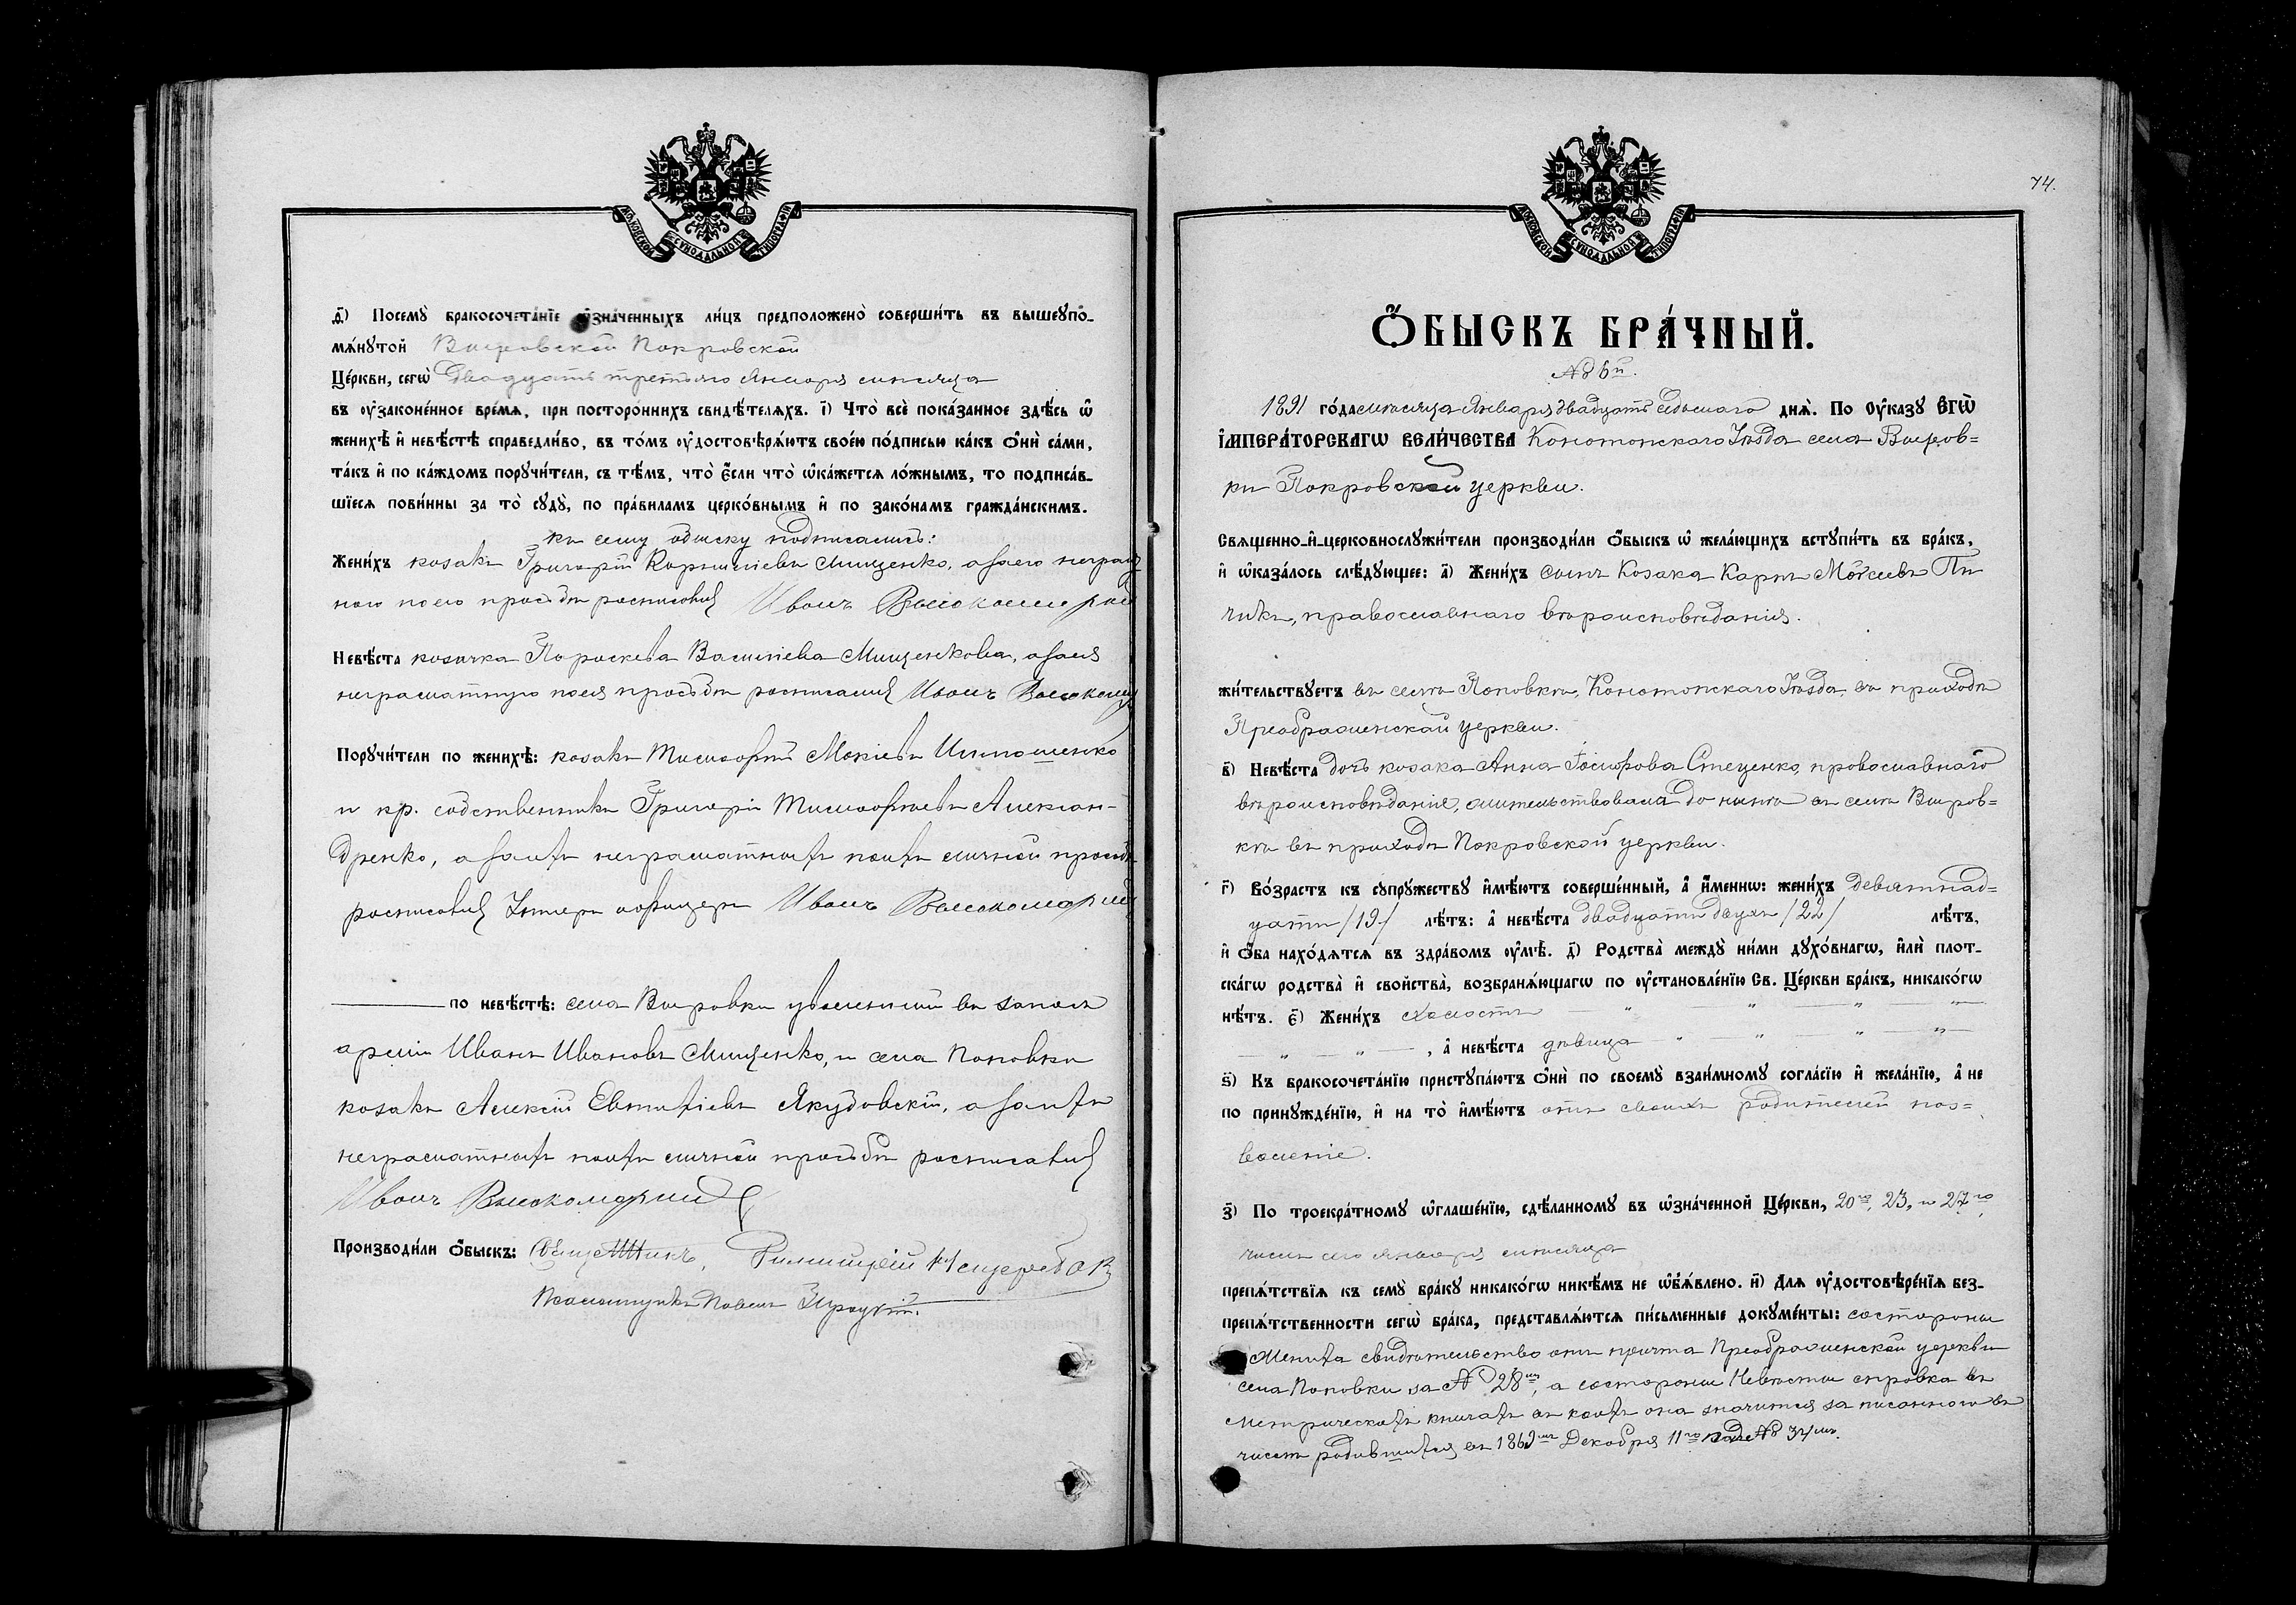 МОСКОВСКОЙ СУНОДАЛЬНОЙ ТИПОГРАФІИ
ѳ҃) Посемꙋ̀ бракосочета́нїе ѡ҆зна́ченныхъ ли́цъ предположено̀ соверши́ть въ вышеꙋпо-
мѧ́нꙋтой Вировской Покровской
Це́ркви, сегѡ̀ двадцать третьяго Января мѣсяца
въ ᲂу҆законе́нное вре́мѧ, при посторо́ннихъ свидѣ́телѧхъ. і҃) Что̀ всѐ пока́занное здѣ́сь ѡ҆
женихѣ̀ и҆ невѣ́стѣ справедли́во, въ то́мъ ᲂу҆достовѣрѧ́ютъ своє́ю по́дписью ка́къ ѻ҆нѝ са́ми,
та́къ и҆ по ка́ждомъ порꙋчи́тели, съ тѣ́мъ, что̀ є҆́сли что̀ ѡ҆ка́жетсѧ ло́жнымъ, то подписа́в-
шїесѧ пови́нны за то̀ сꙋдꙋ̀, по пра́вилamъ церко́внымъ и҆ по зако́намъ гражда́нскимъ.
къ сему обыску подписались:
Жени́хъ козакъ Григорій Корниліевъ Мищенко, а за него неграмот
наго по его прозьбѣ росписался Иванъ
Невѣ́ста козачка Параскева Василіева Мищенкова, а за нея
неграматную по ея прозьбѣ росписался Иванъ
Порꙋчи́тели по женихѣ̀: козакъ Тимофей Мокіевъ
и кр. собственникъ Григорій Тимофеевъ Алексан-
дренко, а за нихъ неграматныхъ по ихъ личной прозьбѣ
росписался Унтеръ офицеръ Иванъ
по невѣ́стѣ: села Вировки уволенный въ запасъ
арміи Иванъ Ивановъ Мищенко, и села Поповки
козакъ Алексій Евтихіевъ Якубовскій, а за нихъ
неграматныхъ по ихъ личной прозьбѣ росписался
Иванъ
Производи́ли ѻ҆́быскъ: Священникъ,
Псаломщикъ Павелъ
74.
МОСКОВСКОЙ СУНОДАЛЬНОЙ ТИПОГРАФІИ
Ѻ҆́БЫСКЪ БРА́ЧНЫЙ.
№ 6й.
1891 го́да мѣсяца Января двадцать седьмаго днѧ̀. По Оу҆ка́зꙋ ЕГѠ̀
І҆МПЕРА́ТОРСКАГѠ ВЕЛИ́ЧЕСТВА Конотопскаго Уѣзда села Виров=
ки Покровской церкви.
Свѧщенно-и҆-церковнослꙋжи́тели производи́ли ѻ҆́быскъ ѡ҆ жела́ющихъ встꙋпи́ть въ бра́къ,
и҆ ѡ҆каза́лось слѣ́дꙋющее: а҃) Жени́хъ сынъ Козака Карпъ Моѵсеевъ Пи
чикъ, православнаго вѣроисповѣданія.
жи́тельствꙋетъ въ селѣ Поповкѣ, Конотопскаго Уѣзда, въ приходѣ
Преображенской церкви.
в҃) Невѣ́ста дочь козака Анна Іосифова Стеценко, православнаго
вѣроисповѣданія, жительствовала до нынѣ въ селѣ Виров=
кѣ въ приходѣ Покровской церкви.
г҃) Во́зрастъ къ сꙋпрꙋ́жествꙋ и҆мѣ́ютъ соверше́нный, а҆ и҆́меннѡ: жени́хъ девятнад=
цати /19/ лѣ́тъ: а҆ невѣ́ста двадцати двухъ /22/ лѣ́тъ,
и҆ ѻ҆́ба нахо́дѧтсѧ въ здра́вомъ ᲂу҆мѣ̀. д҃) Родства̀ междꙋ̀ ни́ми дꙋхо́внагѡ, и҆лѝ плот-
ска́гѡ родства̀ и҆ свойства̀, возбранѧ́ющагѡ по ᲂу҆становле́нїю Св. Це́ркви бра́къ, никако́гѡ
нѣ́тъ. є҃) Жени́хъ холостъ — „ — „ — „ — „ —
— „ — „ — , а҆ невѣ́ста дѣвица — „ — „ — „ — „ —
ѕ҃) Къ бракосочета́нїю пристꙋпа́ютъ ѻ҆нѝ по своемꙋ̀ взаи́мномꙋ согла́сїю и҆ жела́нїю, а҆ не
по принꙋжде́нїю, и҆ на то̀ и҆мѣ́ютъ отъ своихъ родителей поз=
воленіе.
з҃) По троекра́тномꙋ ѡ҆глаше́нїю, сдѣ́ланномꙋ въ ѡ҆зна́ченной Це́ркви, 20го, 23, и 27го
числъ сего января мѣсяца
препѧ́тствїѧ къ семꙋ̀ бра́кꙋ никако́гѡ никѣ́мъ не ѡ҆б̾ѧ́влено. и҃) Длѧ ᲂу҆достовѣре́нїѧ без-
препѧ́тственности сегѡ̀ бра́ка, представлѧ́ютсѧ пи́сьменные докꙋме́нты: со стороны
Жениха свидѣтельство отъ причта Преображенской церкви
села Поповки за № 28мъ, а со стороны Невѣсты справка въ
Метрическихъ книгахъ въ коихъ она значится записанною въ
числѣ родившихся въ 1869мъ Декабря 11го подъ № 34мъ.